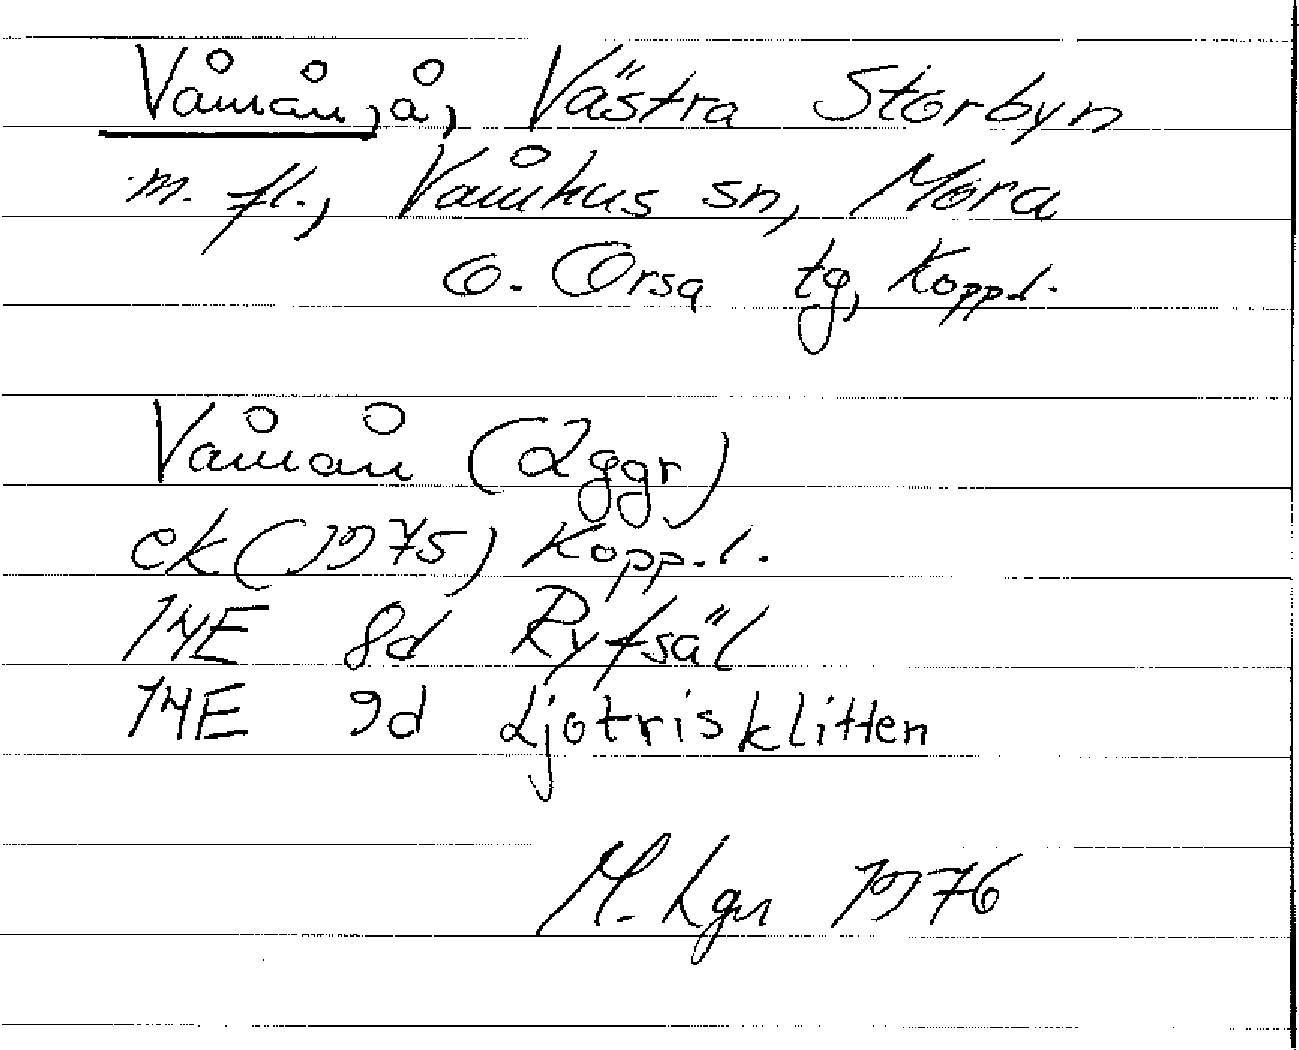 Våmån, å, Västra Storbyn
m. fl., Våmhus sn, Mora
o. Orsa tg, Kopp.l.
Våmån (2ggr)
ek (1975) Kopp.l.
14E 8d Ryfsäl
14E 9d Ljotrisklitten
M. Lgn 1976